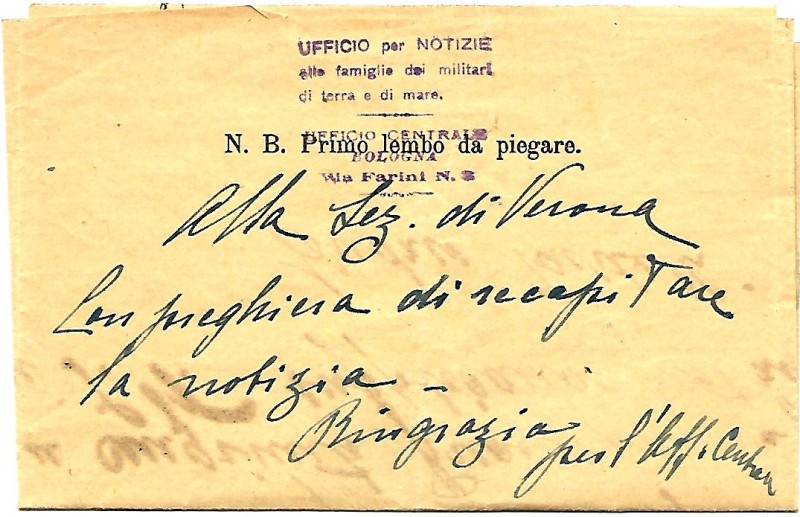 UFFICIO per NOTIZIE
alle famiglie dei militari
di terra e di mare.
UFFICIO CENTRALE
N. B. Primo lembo da piegare.
BOLOGNA
Via Farini N. 3
Alla Sez. di Verona
Con preghiera di recapitare
la notizia –
Ringrazia
per l'Uff. Central